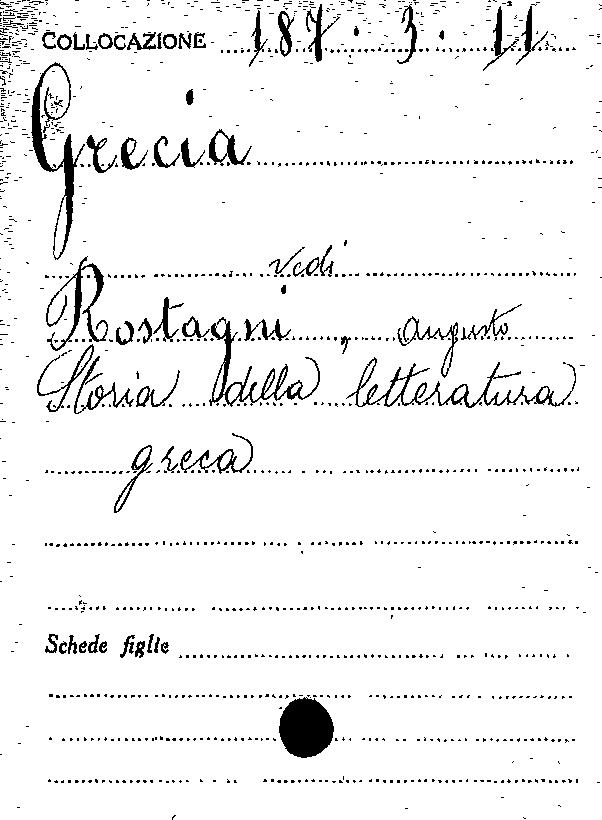 COLLOCAZIONE 187.3.11
Grecia
vedi
Rostagni, Augusto
Storia della letteratura
greca
Schede figlie